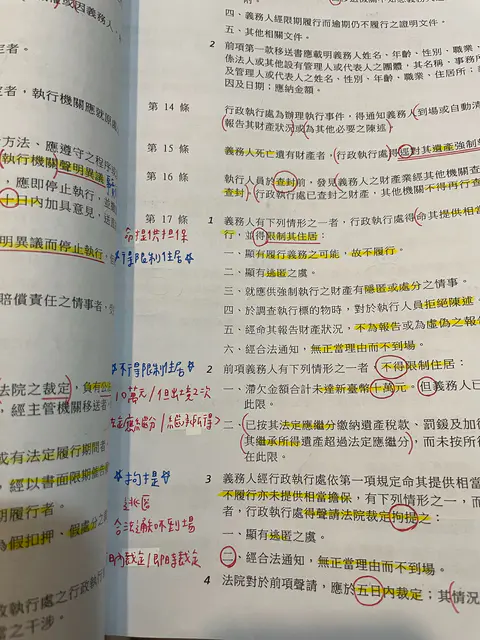 四、義務人經限期履行而逾期仍不履行之證明文件。
五、其他相關文件。
2 前項第一款移送書應載明義務人姓名、年齡、性別、職業、
係法人或其他設有管理人或代表人之團體，其名稱、事務所
及管理人或代表人之姓名、性別、年齡、職業、住居所；
因及日期；應納金額。
第 14 條 行政執行處為辦理執行事件，得通知義務人到場或自動清
報告其財產狀況或為其他必要之陳述
第 15 條 義務人死亡遺有財產者，行政執行處得逕對其遺產強制
第 16 條 執行人員於查封前，發見義務人之財產業經其他機關查
查封。行政執行處已查封之財產，其他機關不得再行查
第 17 條 1 義務人有下列情形之一者，行政執行處得命其提供相當
行，並得限制其住居：
命提供擔保
得限制住居
一、顯有履行義務之可能，故不履行。
二、顯有逃匿之虞。
三、就應供強制執行之財產有隱匿或處分之情事。
四、於調查執行標的物時，對於執行人員拒絕陳述。
五、經命其報告財產狀況，不為報告或為虛偽之報
六、經合法通知，無正當理由而不到場。
不得限制住居
2 前項義務人有下列情形之一者，不得限制住居：
10萬元/但出境2次
一、滯欠金額合計未達新臺幣十萬元。但義務人已
此限。
二、已按其法定應繼分繳納遺產稅款、罰鍰及加徵
其繼承所得遺產超過法定應繼分，而未按所
在此限。
拘提
3 義務人經行政執行處依第一項規定命其提供相當
不履行亦未提供相當擔保，有下列情形之一，而
者，行政執行處得聲請法院裁定拘提之：
逃匿
合法通知不到場
一、顯有逃匿之虞。
二、經合法通知，無正當理由而不到場。
4 法院對於前項聲請，應於五日內裁定；其情況
定者。
定者，執行機關應就原處
方法、應遵守之程序或
執行機關聲明異議
，應即停止執行，並
十日內加具意見，送
明異議而停止執行，
賠償責任之情事者，
法院之裁定，負有
，經主管機關移送者
或有法定履行期間者
，經以書面限期催告
期履行者。
為假扣押、假處分之
政執行處之行政執行
當之干涉。